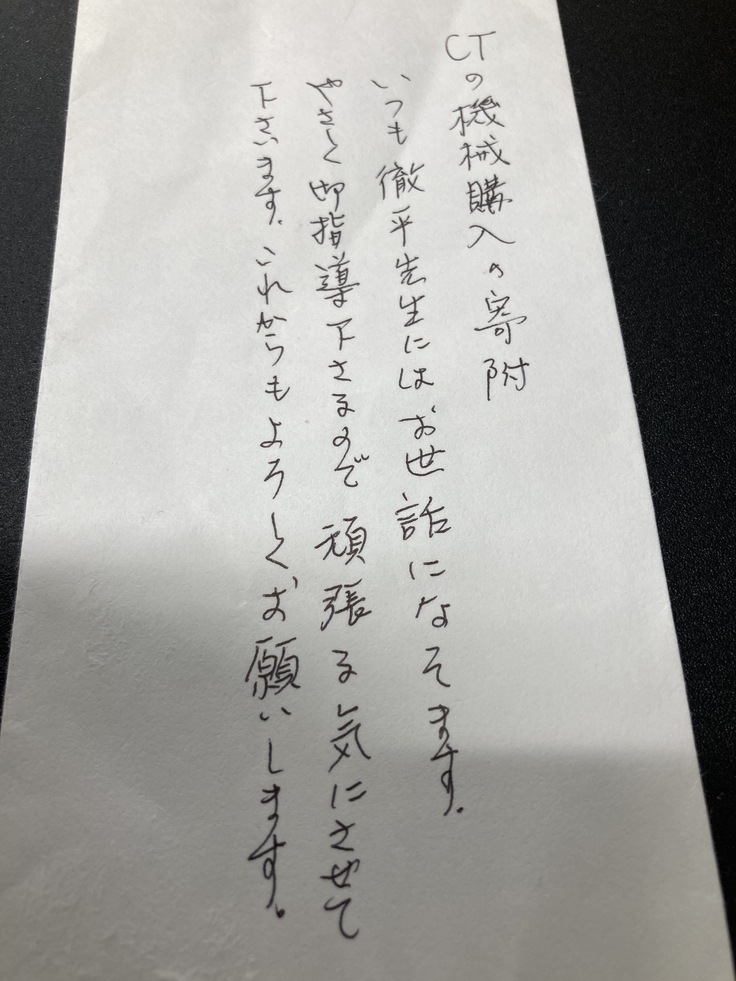 CTの機械購入の寄附
いつも徹平先生にはお世話になてます。
やさしく御指導下さるので頑張る気にさせて
下さいます。これからもよろしくお願いします。